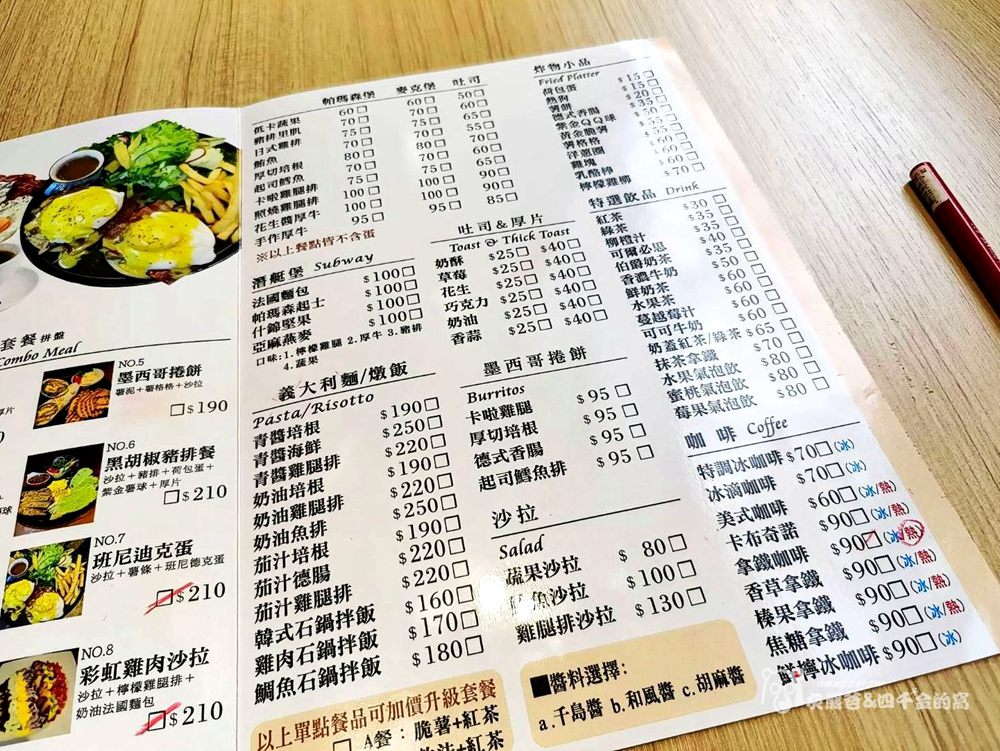 帕瑪森堡 麥克堡 吐司
低卡蔬果 60□ 60□ 50□
豬排里肌 70□
日式雞排 75□
鮪魚 70□
厚切培根 80□
起司鱈魚 70□
卡啦雞腿排 75□
照燒雞腿排 100□ 100□ 90□
花生醬厚牛 100□ 100□ 90□
手作厚牛 95□ 95□ 85□
※以上餐點皆不含蛋
潛艇堡 Subway
法國麵包 $100□
帕瑪森起士 $100□
什錦堅果 $100□
亞麻燕麥 $100□
口味:1.檸檬雞腿 2.厚牛 3.豬排
4.蔬果
義大利麵/燉飯
Pasta/Risotto
青醬培根 $190□
青醬海鮮 $250□
青醬雞腿排 $220□
奶油培根 $190□
奶油雞腿排 $220□
奶油魚排 $250□
茄汁培根 $190□
茄汁德腸 $220□
茄汁雞腿排 $220□
韓式石鍋拌飯 $160□
雞肉石鍋拌飯 $170□
鯛魚石鍋拌飯 $180□
以上單點餐品可加價升級套餐
□ A餐:脆薯+紅茶
+紅茶
吐司&厚片
Toast & Thick Toast
奶酥 $25□ $40□
草莓 $25□ $40□
花生 $25□ $40□
巧克力 $25□ $40□
奶油 $25□ $40□
香蒜 $25□ $40□
墨西哥捲餅
Burritos
卡啦雞腿 $95□
厚切培根 $95□
德式香腸 $95□
起司鱈魚排 $95□
沙拉
Salad
蔬果沙拉 $ 80□
魚沙拉 $100□
雞腿排沙拉 $130□
■醬料選擇:
a.千島醬 b.和風醬 c.胡麻醬
炸物小品
Fried Platter
荷包蛋 $15□
熱狗 $15□
薯餅 $20□
德式香腸 $35□
紫金QQ球 $50□
黃金脆薯 $55□
薯格格 $55□
洋蔥圈 $60□
雞塊 $60□
乳酪棒 $60□
檸檬雞柳 $70□
特選飲品 Drink
紅茶 $30□
綠茶 $35□
柳橙汁 $35□
可爾必思 $40□
伯爵奶茶
香濃牛奶
鮮奶茶
水果茶
蔓越莓汁
可可牛奶
奶蓋紅茶/綠茶 $65□
抹茶拿鐵 $70□
水果氣泡飲 $80□
蜜桃氣泡飲 $80□
莓果氣泡飲 $80□
咖啡 Coffee
特調冰咖啡 $70□(冰)
冰滴咖啡 $70□(冰)
美式咖啡 $60□(冰/熱)
卡布奇諾 $90□(冰/熱)
拿鐵咖啡 $90□(冰/熱)
香草拿鐵 $90□(冰/熱)
榛果拿鐵 $90□(冰/熱)
焦糖拿鐵 $90□(冰/熱)
鮮檸冰咖啡 $90□(冰)
套餐 拼盤
Combo Meal
NO.5
墨西哥捲餅
薯泥+薯格格+沙拉
□$190
NO.6
黑胡椒豬排餐
沙拉+豬排+荷包蛋+
紫金薯球+厚片
□$210
NO.7
班尼迪克蛋
沙拉+薯條+班尼德克蛋
□$210
NO.8
彩虹雞肉沙拉
沙拉+檸檬雞腿排+
奶油法國麵包
□$210
&四千金的窩